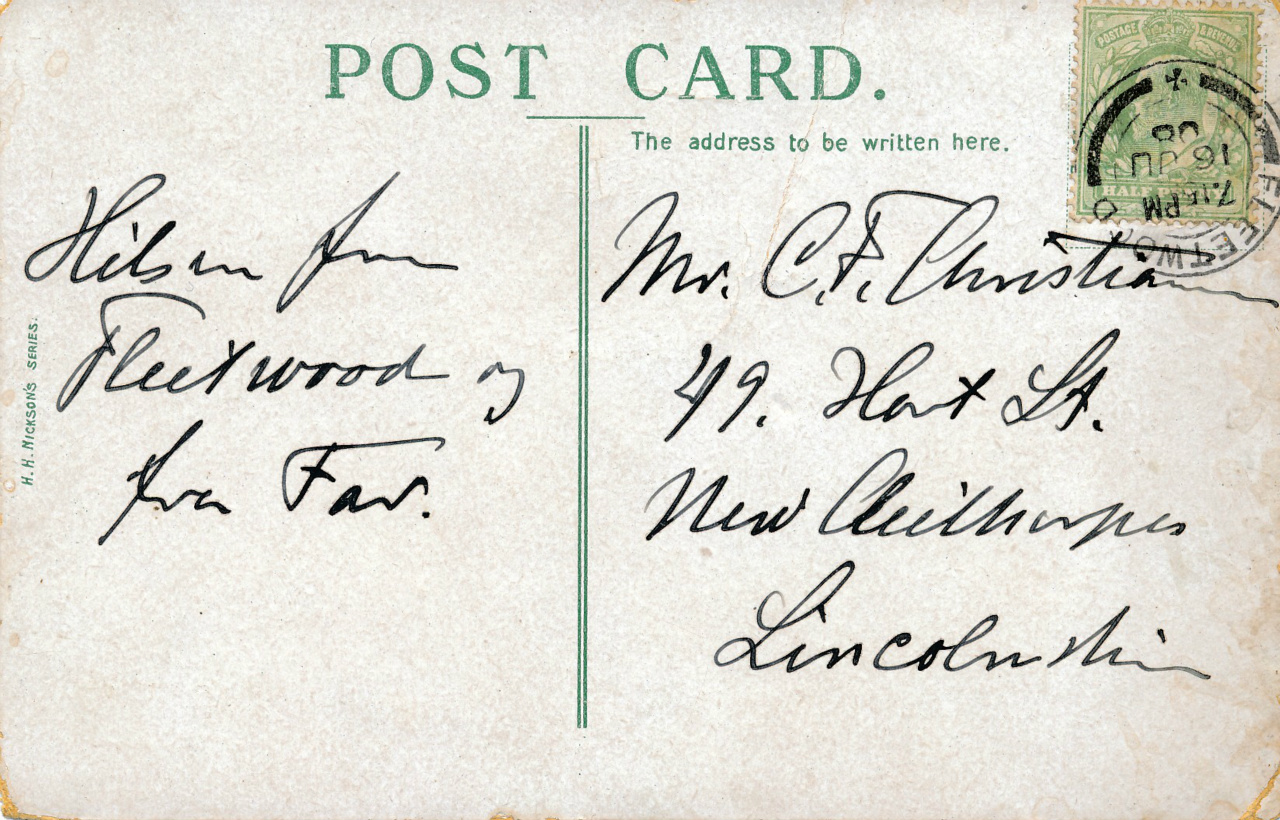 POST CARD.
The address to be written here.
POSTAGE & REVENUE
HALF PENNY
FLEETWOOD
7.15 PM
16 JU
08
Hilsen fra
Fleetwood og
fra Far.
Mr. C. F. Christian
49. Hart St.
New Cleethorpes
Lincolnshire
H. H. NICKSON'S SERIES.